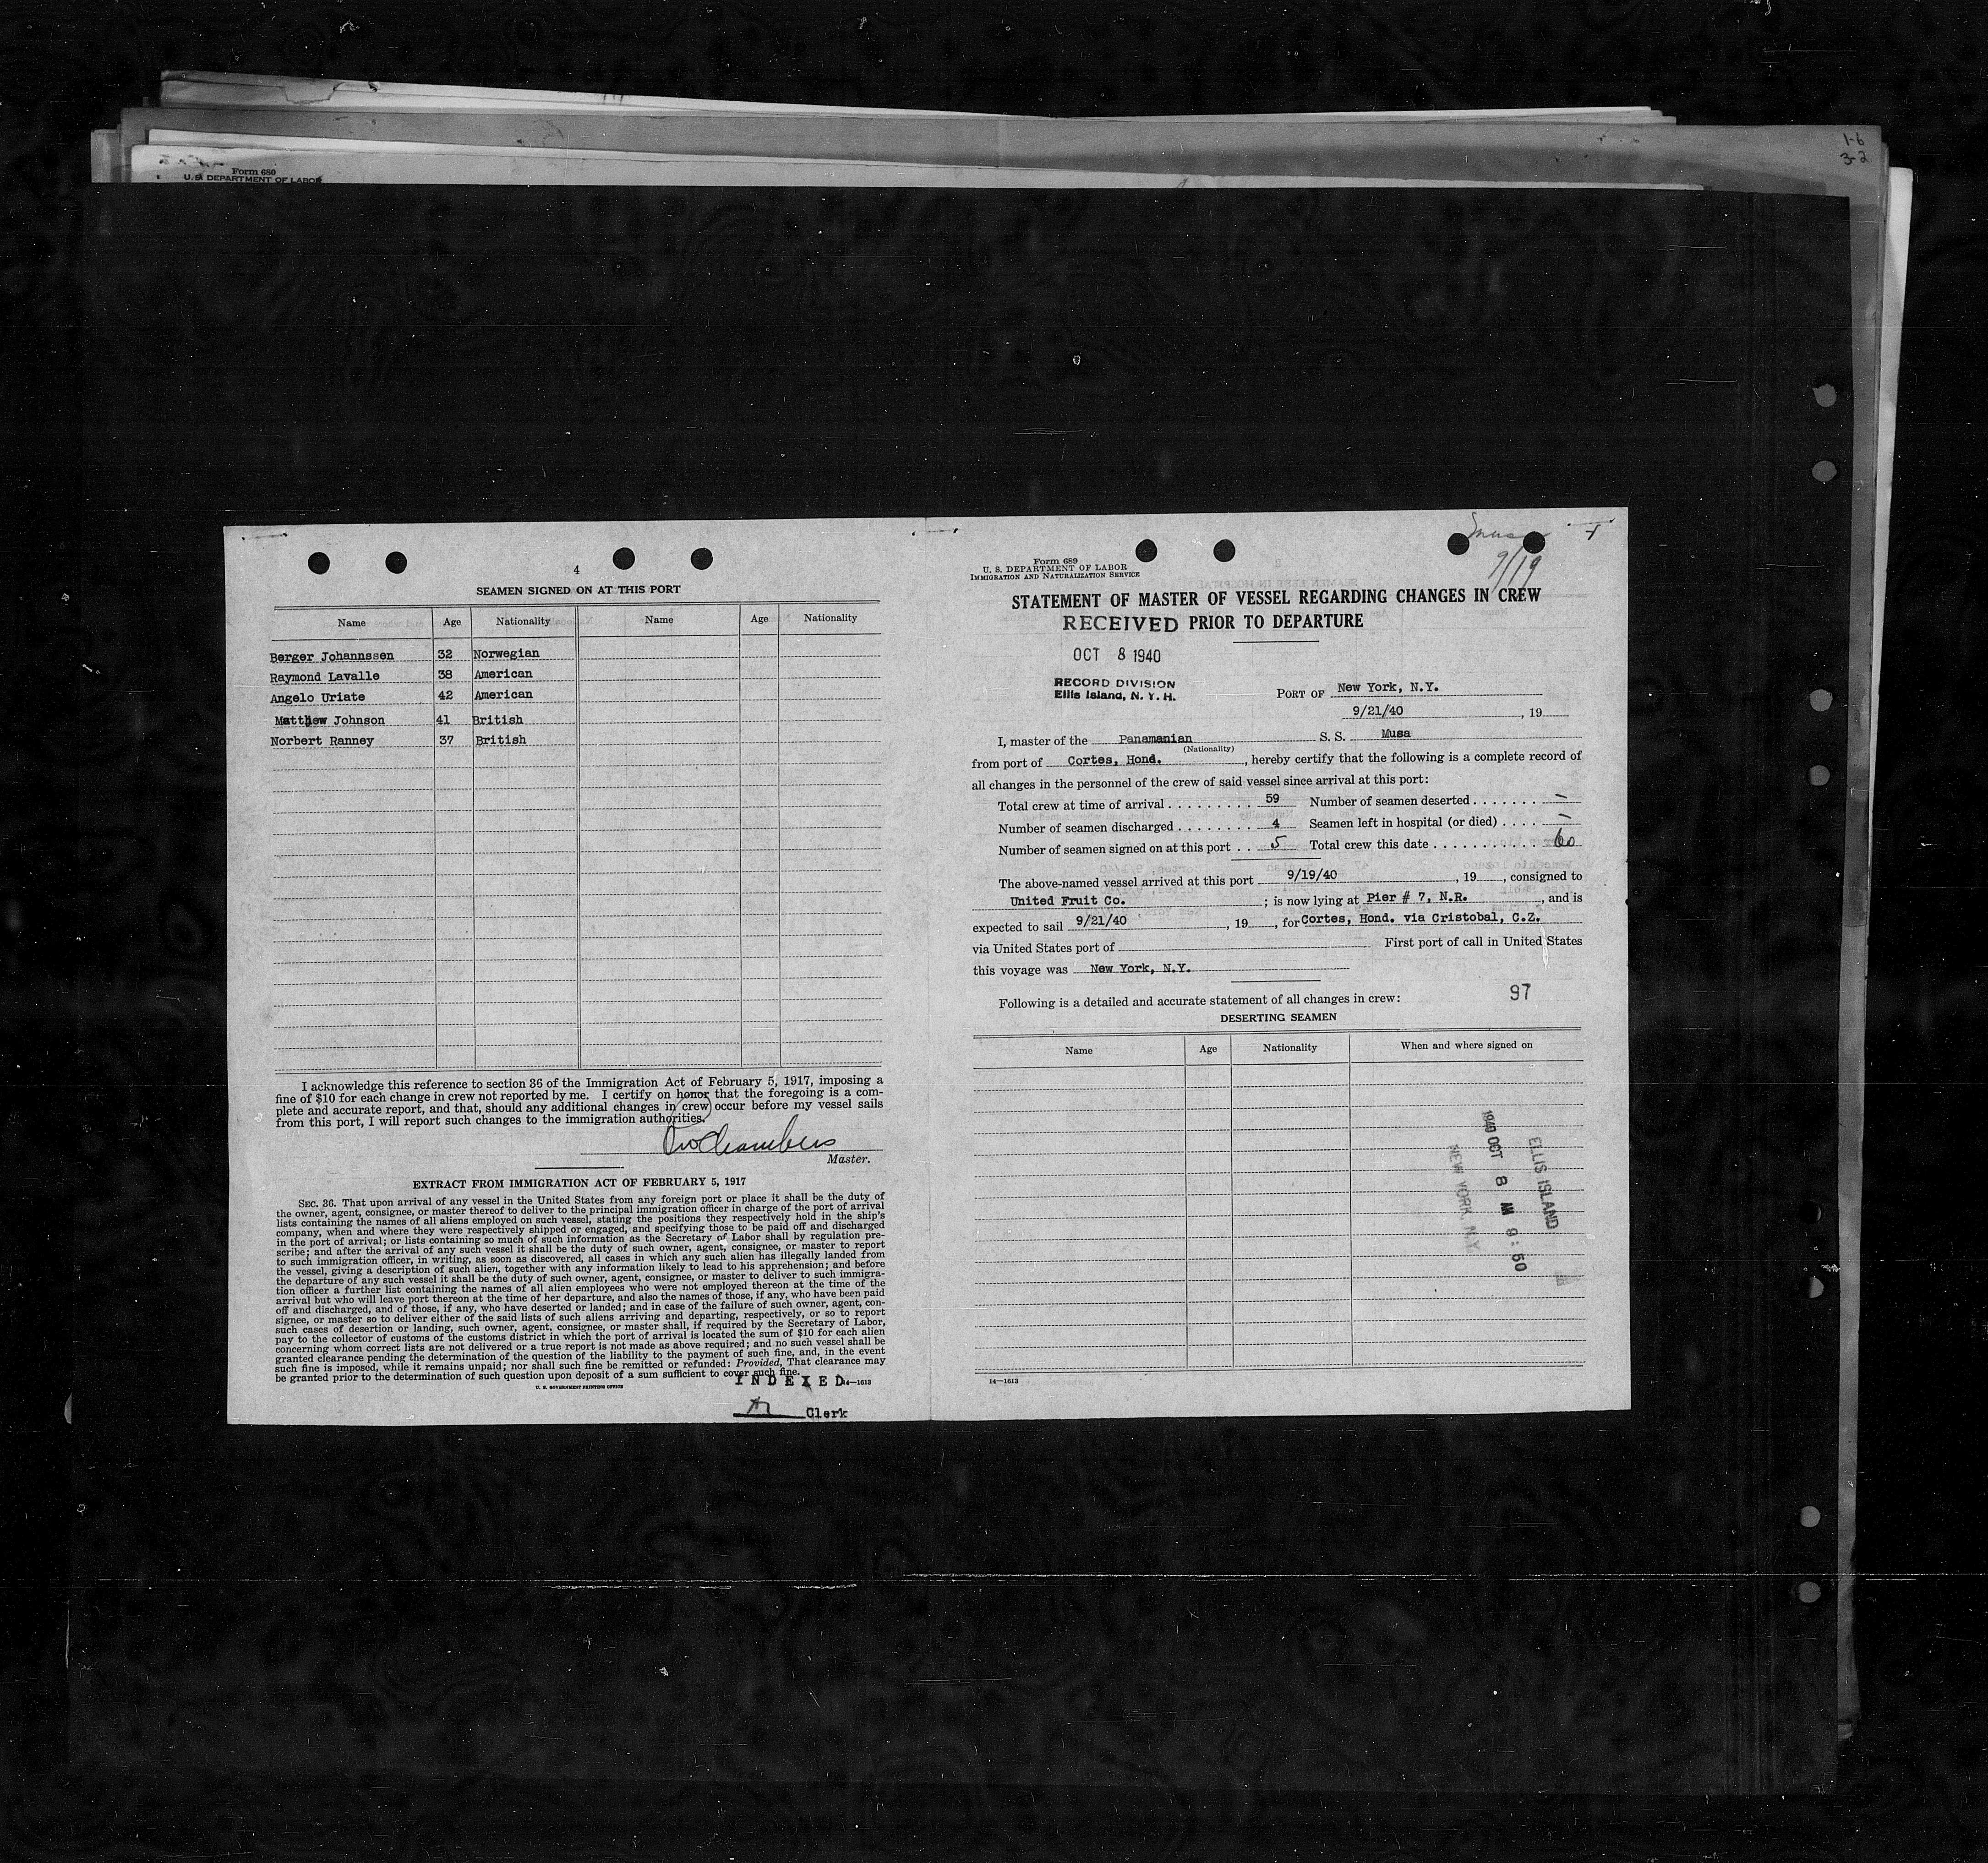 1-6
3-2
Form 680
U. S. DEPARTMENT OF LABOR
4
SEAMEN SIGNED ON AT THIS PORT
Name Age Nationality Name Age Nationality
Berger Johannssen 32 Norwegian
Raymond Lavalle 38 American
Angelo Uriate 42 American
Matthew Johnson 41 British
Norbert Ranney 37 British
I acknowledge this reference to section 36 of the Immigration Act of February 5, 1917, imposing a
fine of $10 for each change in crew not reported by me. I certify on honor that the foregoing is a com-
plete and accurate report, and that, should any additional changes in crew occur before my vessel sails
from this port, I will report such changes to the immigration authorities.
Chambers
Master.
EXTRACT FROM IMMIGRATION ACT OF FEBRUARY 5, 1917
SEC. 36. That upon arrival of any vessel in the United States from any foreign port or place it shall be the duty of
the owner, agent, consignee, or master thereof to deliver to the principal immigration officer in charge of the port of arrival
lists containing the names of all aliens employed on such vessel, stating the positions they respectively hold in the ship's
company, when and where they were respectively shipped or engaged, and specifying those to be paid off and discharged
in the port of arrival; or lists containing so much of such information as the Secretary of Labor shall by regulation pre-
scribe; and after the arrival of any such vessel it shall be the duty of such owner, agent, consignee, or master to report
to such immigration officer, in writing, as soon as discovered, all cases in which any such alien has illegally landed from
the vessel, giving a description of such alien, together with any information likely to lead to his apprehension; and before
the departure of any such vessel it shall be the duty of such owner, agent, consignee, or master to deliver to such immigra-
tion officer a further list containing the names of all alien employees who were not employed thereon at the time of the
arrival but who will leave port thereon at the time of her departure, and also the names of those, if any, who have been paid
off and discharged, and of those, if any, who have deserted or landed; and in case of the failure of such owner, agent, con-
signee, or master so to deliver either of the said lists of such aliens arriving and departing, respectively, or so to report
such cases of desertion or landing, such owner, agent, consignee, or master shall, if required by the Secretary of Labor,
pay to the collector of customs of the customs district in which the port of arrival is located the sum of $10 for each alien
concerning whom correct lists are not delivered or a true report is not made as above required; and no such vessel shall be
granted clearance pending the determination of the question of the liability to the payment of such fine, and, in the event
such fine is imposed, while it remains unpaid; nor shall such fine be remitted or refunded: Provided, That clearance may
be granted prior to the determination of such question upon deposit of a sum sufficient to cover such fine.
U. S. GOVERNMENT PRINTING OFFICE
INDEXED 14—1613
Clerk
Musa
9/19
Form 689
U. S. DEPARTMENT OF LABOR
IMMIGRATION AND NATURALIZATION SERVICE
STATEMENT OF MASTER OF VESSEL REGARDING CHANGES IN CREW
RECEIVED PRIOR TO DEPARTURE
OCT 8 1940
RECORD DIVISION
Ellis Island, N. Y. H.
PORT OF New York, N.Y.
9/21/40 , 19
I, master of the Panamanian S. S. Musa
(Nationality)
from port of Cortes, Hond. , hereby certify that the following is a complete record of
all changes in the personnel of the crew of said vessel since arrival at this port:
Total crew at time of arrival . . . . . . . . . 59 Number of seamen deserted . . . . . . . —
Number of seamen discharged . . . . . . . . 4 Seamen left in hospital (or died) . . . . —
Number of seamen signed on at this port . . 5 Total crew this date . . . . . . . . . . . 60
The above-named vessel arrived at this port 9/19/40 , 19 , consigned to
United Fruit Co. ; is now lying at Pier # 7, N.R. , and is
expected to sail 9/21/40 , 19 , for Cortes, Hond. via Cristobal, C.Z.
via United States port of First port of call in United States
this voyage was New York, N.Y.
Following is a detailed and accurate statement of all changes in crew:
97
DESERTING SEAMEN
Name Age Nationality When and where signed on
ELLIS ISLAND
1940 OCT 8 AM 9:50
NEW YORK, N.Y.
14—1613